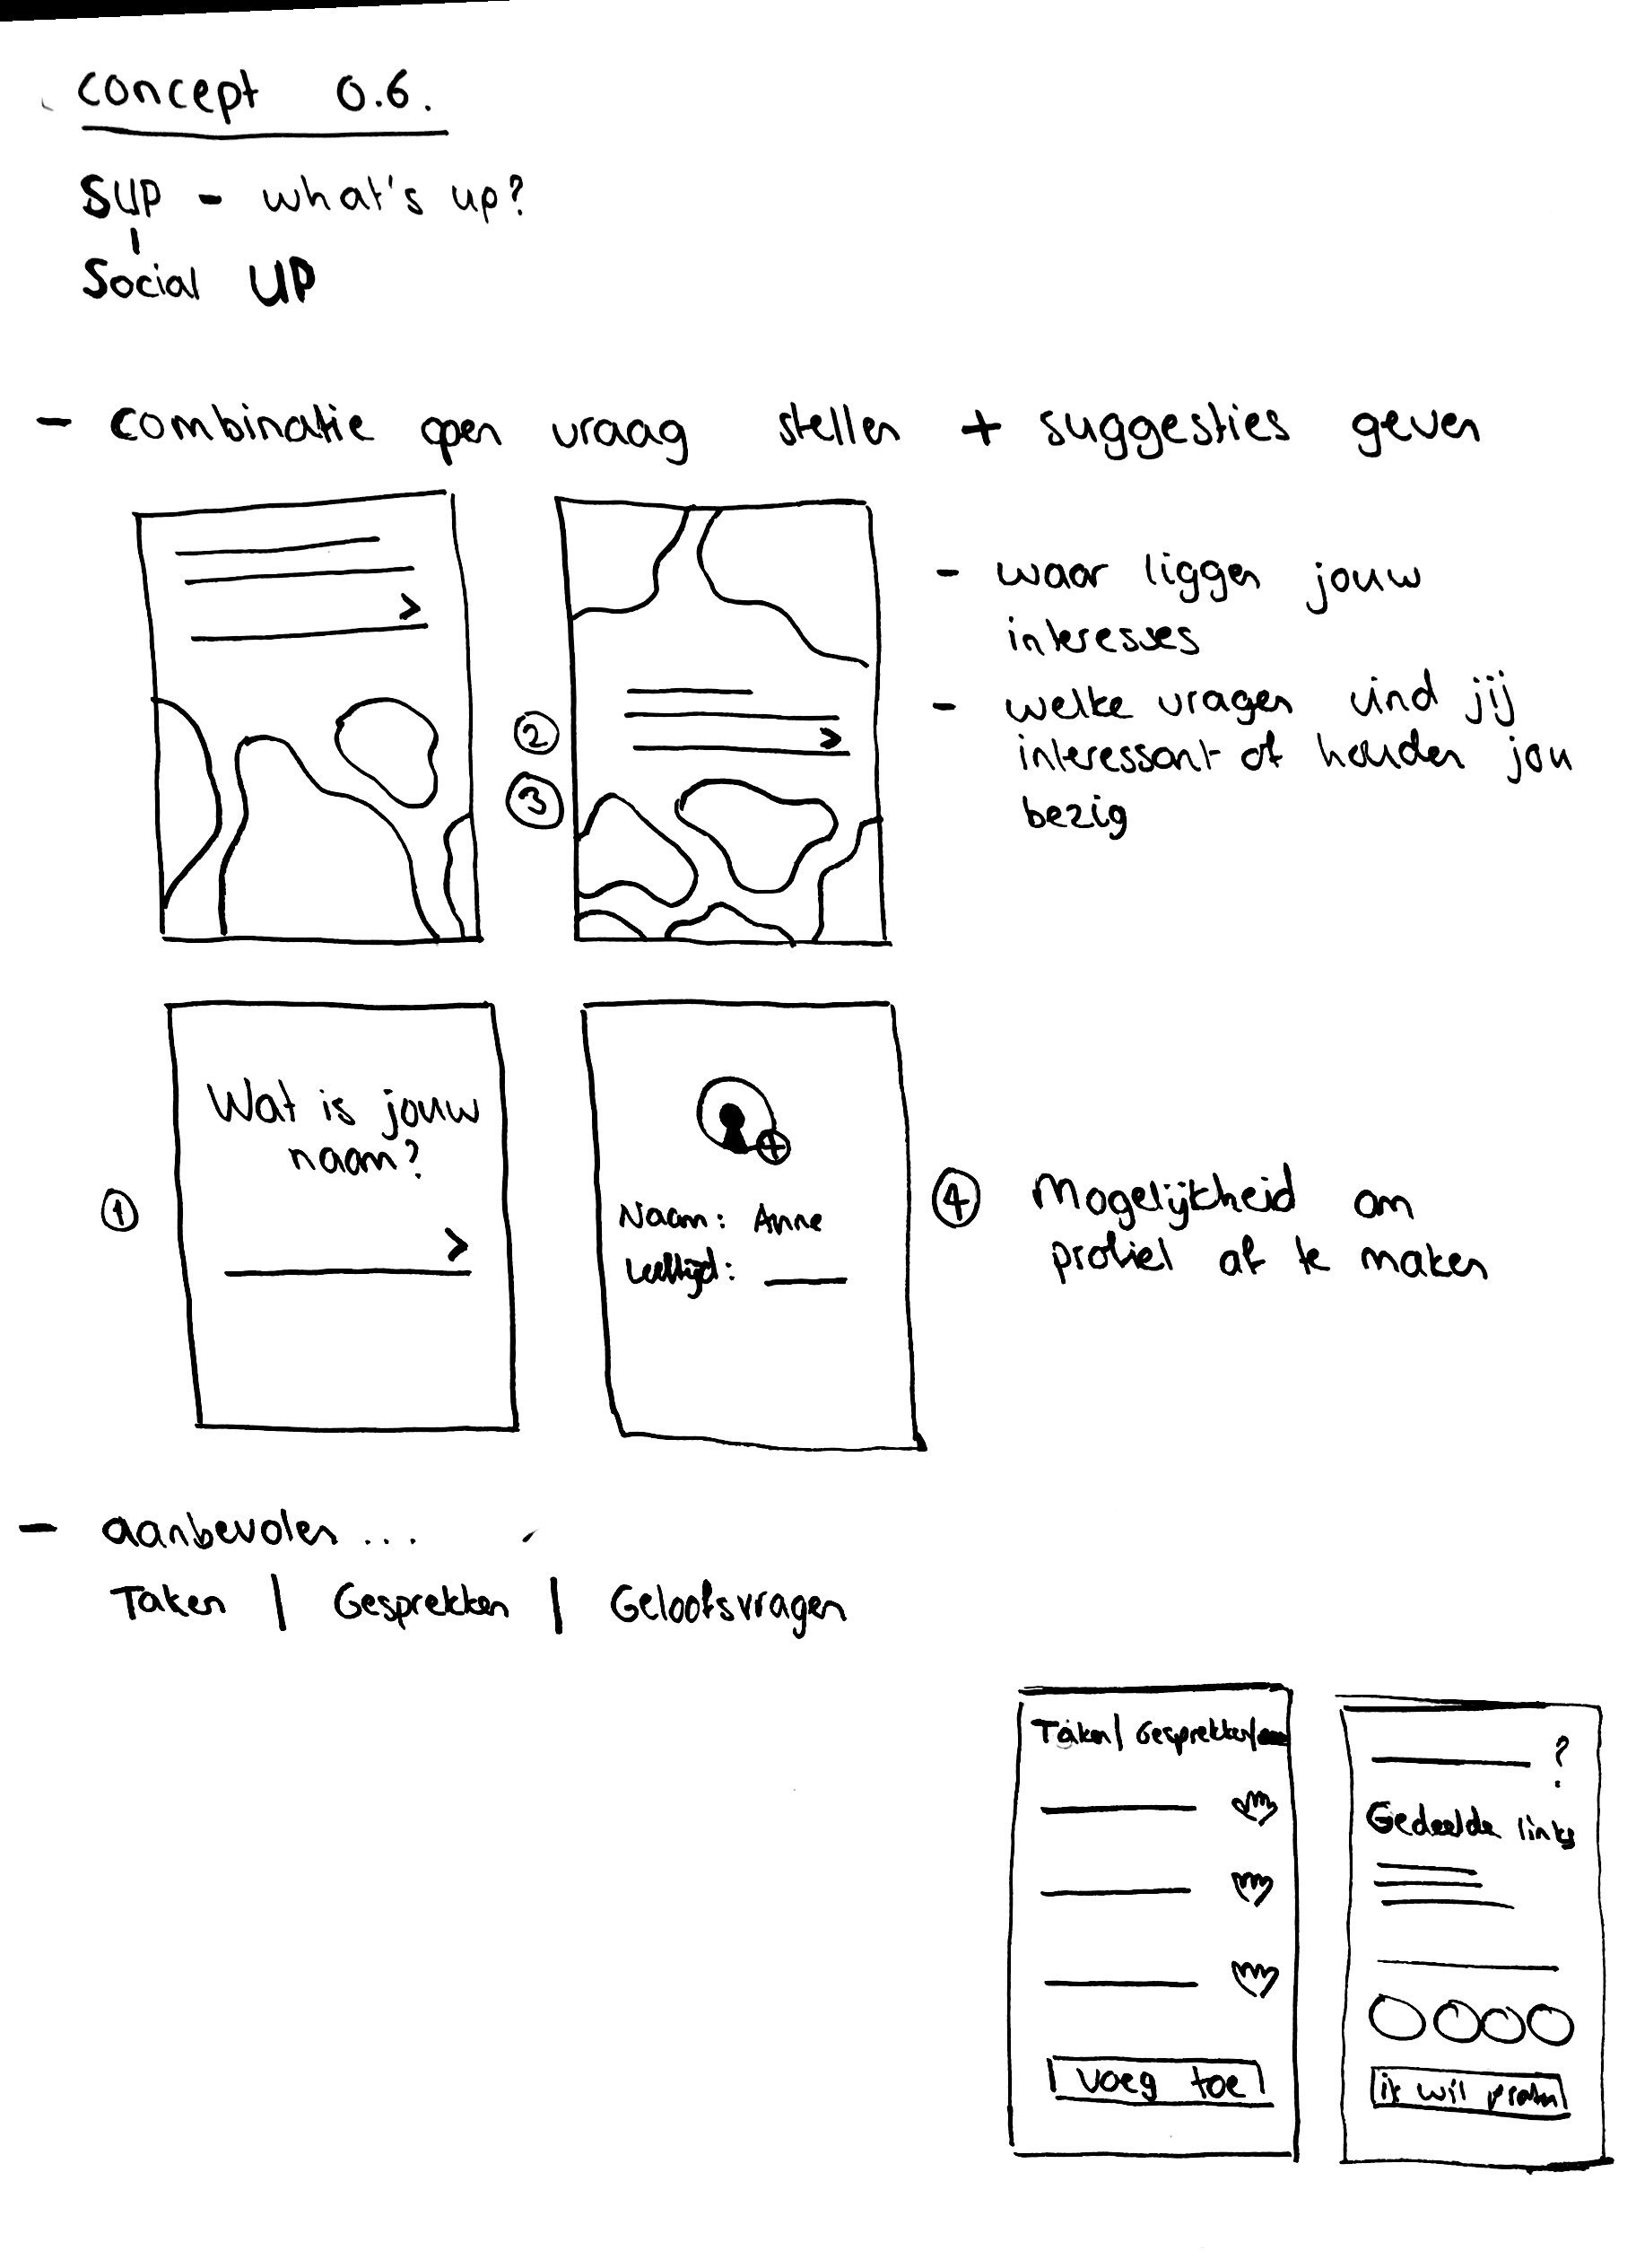 concept 0.6.
SUP - what's up?
Social UP
- combinatie open vraag stellen + suggesties geven
>
>
- waar liggen jouw
interesses
- welke vragen vind jij
interessant of houden jou
bezig
②
③
Wat is jouw
naam?
>
①
Naam: Anne
Leeftijd:
④ Mogelijkheid om
profiel af te maken
- aanbevolen ...
Taken | Gesprekken | Geloofsvragen
Taken | Gesprekken |
voeg toe
?
Gedeelde links
ik wil praten